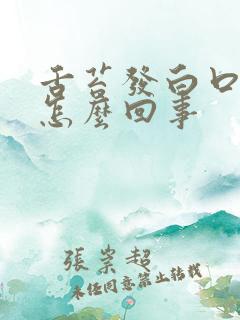 舌苔發白口
怎麼回事
張崇超
未任同意禁止转载